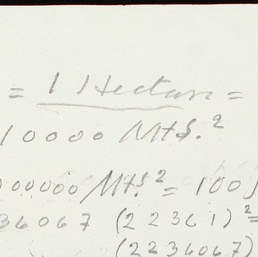 = 1 Hectare =
10000 Mts.²
00000 Mts.² = 100
36067 (22361)² =
(2236067)